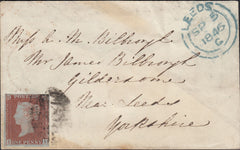 LEEDS
SP 5
1845
C
Miss L. M. Bilbrough
Mr James Bilbrough
Gildersome
Near Leeds
Yorkshire
ONE PENNY